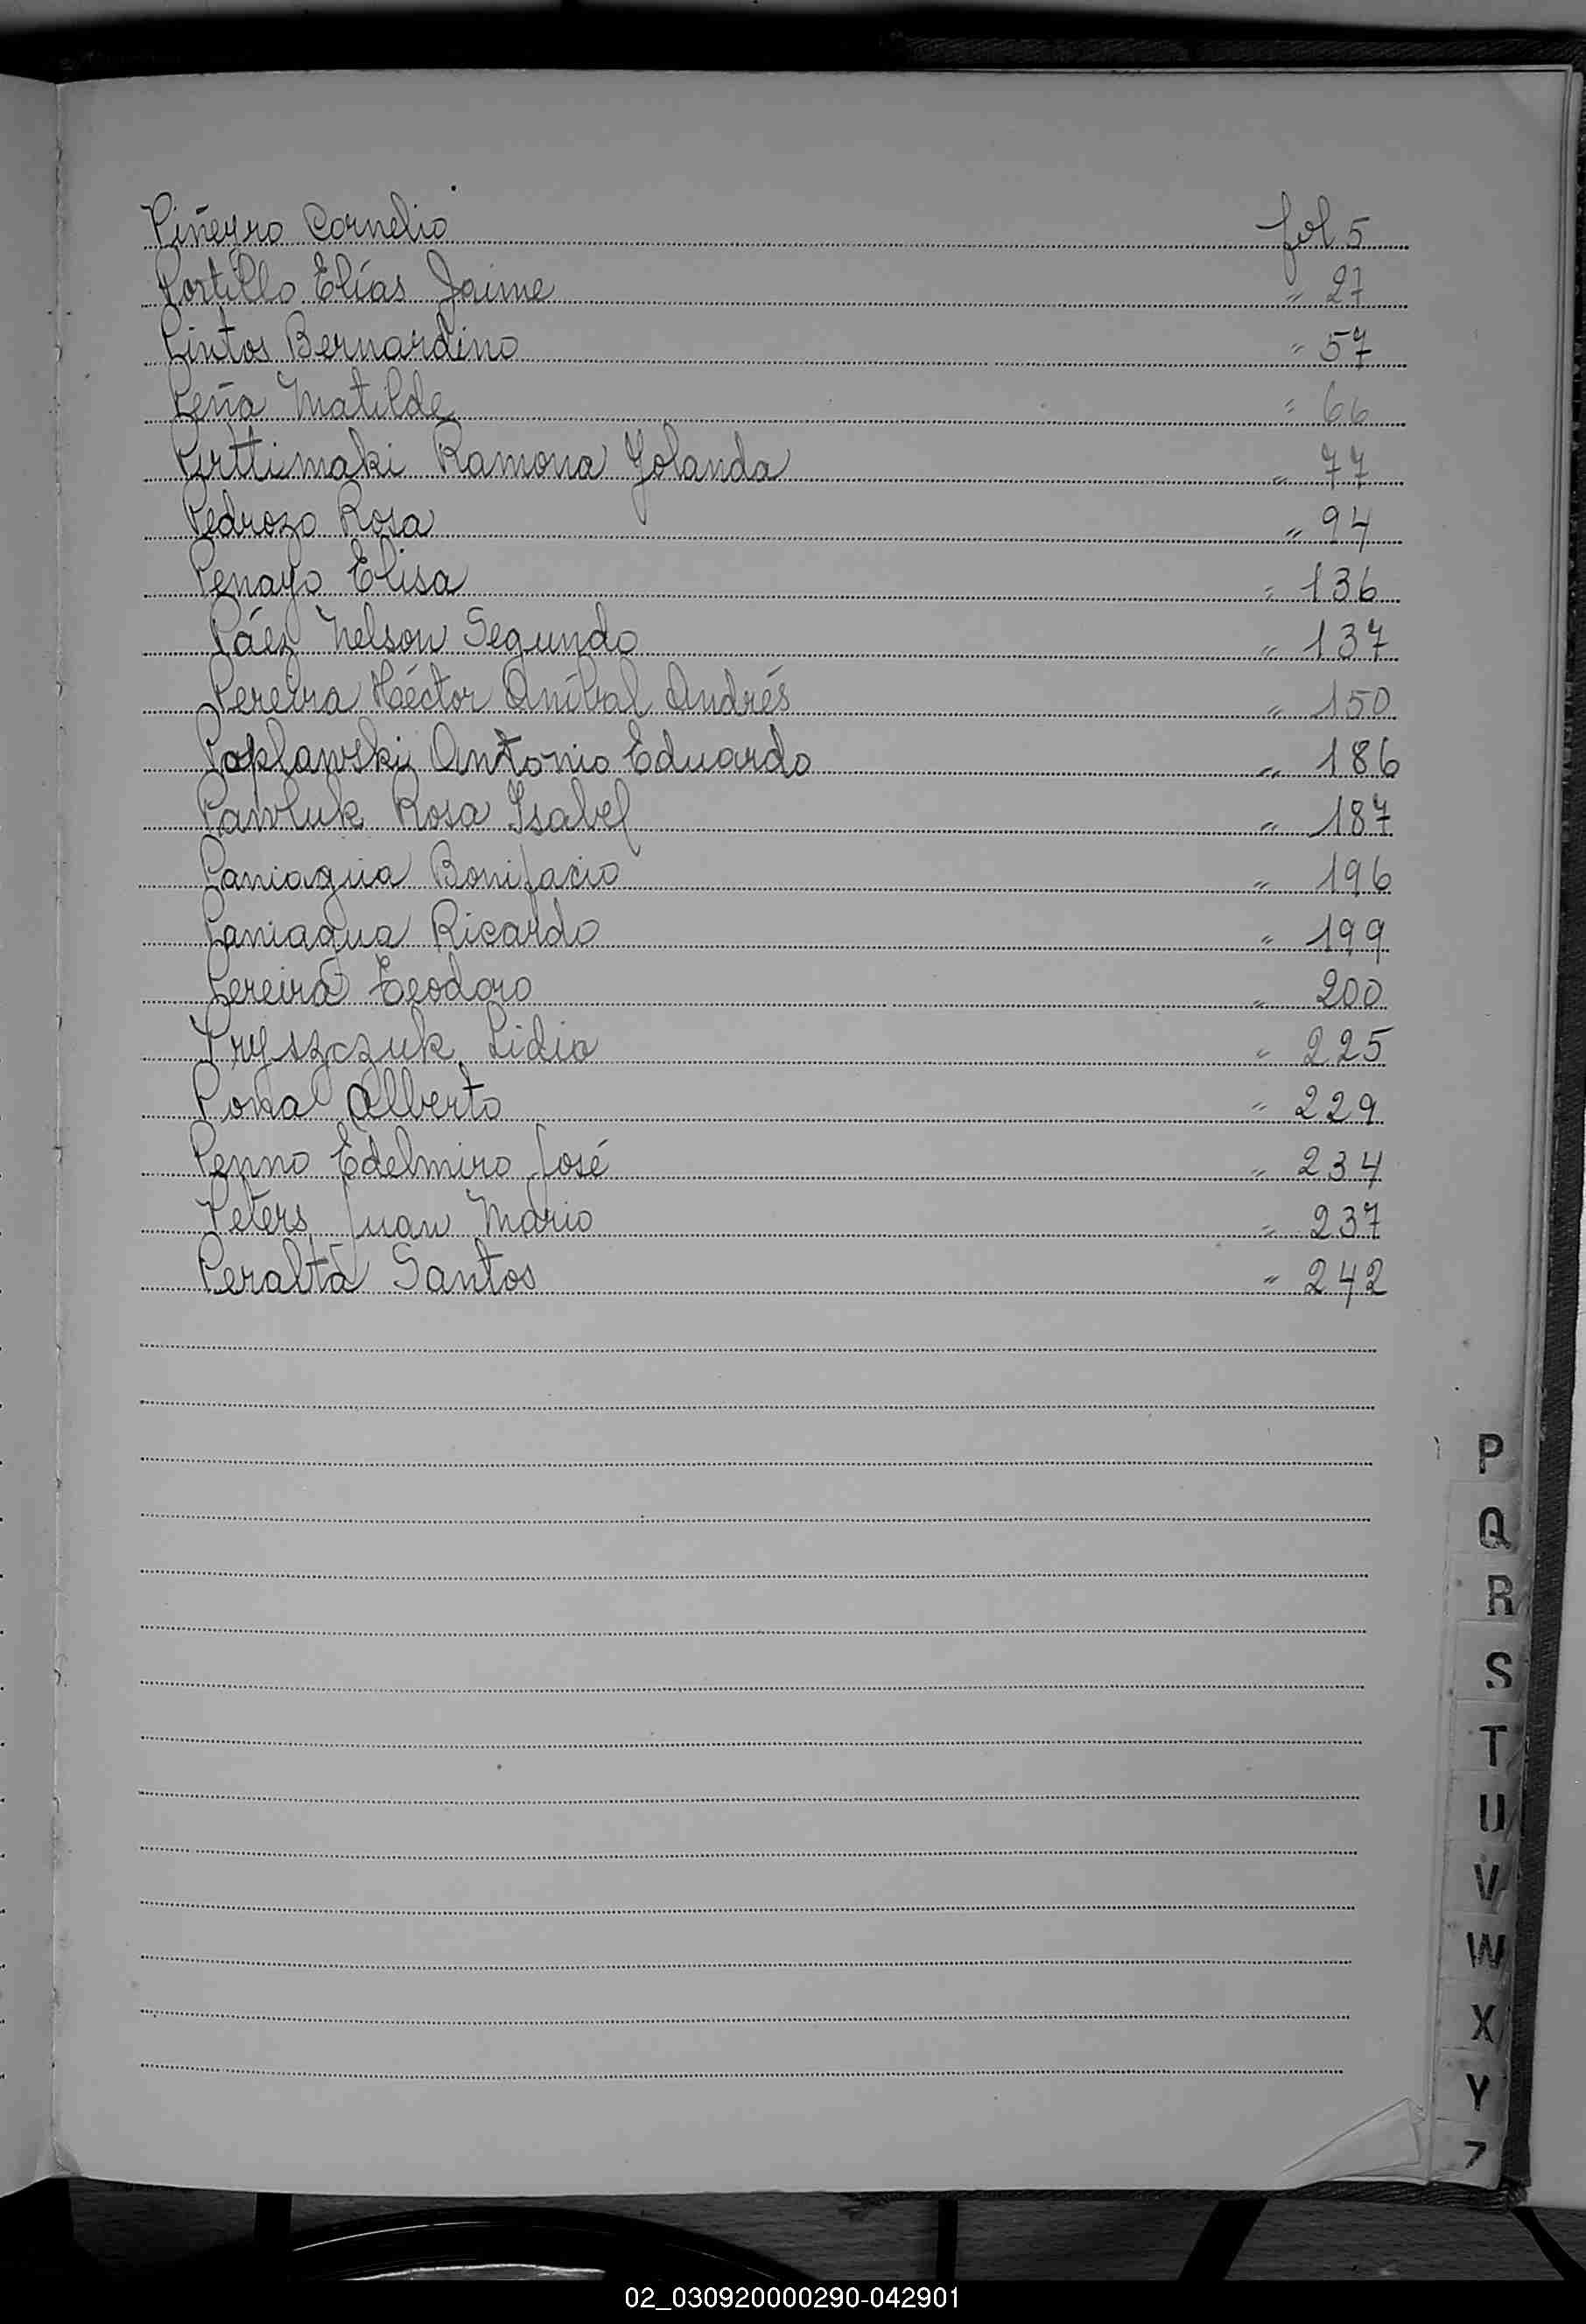 Piñeyro Cornelio fol 5
Portillo Elías Jaime " 27
Pintos Bernardino " 57
Peña Matilde " 66
Pirttimaki Ramona Yolanda " 77
Pedrozo Rosa " 94
Penayo Elisa " 136
Páez Nelson Segundo " 137
Pereira Héctor Aníbal Andrés " 150
Poplawski Antonio Eduardo " 186
Pawluk Rosa Isabel " 187
Paniagua Bonifacio " 196
Paniagua Ricardo " 199
Pereira Teodoro " 200
Pryszczuk Lidia " 225
Alberto " 229
Penno Edelmiro José " 234
Peters Juan Mario " 237
Peralta Santos " 242
P
Q
R
S
T
U
V
W
X
Y
Z
02_030920000290-042901